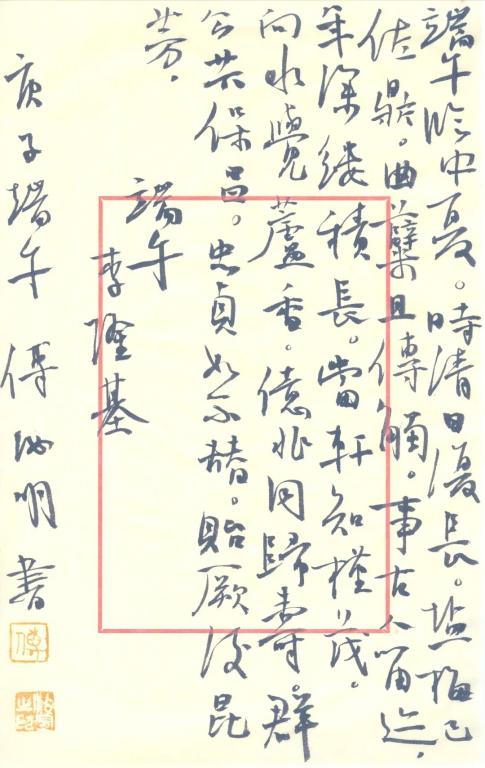 端午臨中夏。時清日復長。塩梅已
佐鼎。曲蘖且傳觴。事古人留迹,
年深縷積長。當軒知槿茂。
向水覺蘆香。億兆同歸壽。群
公共保昌。忠貞如不替。貽厥後昆
芳.
端午
李隆基
庚子端午 傅明書
傅